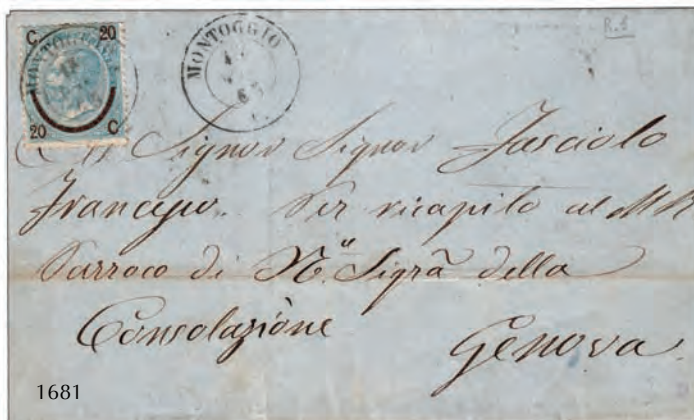 R.1
C 20
MONTOGGIO
20 C
MONTOGGIO
Al Signor Signor Fasciolo
Francesco. Per ricapito al M R
Parroco di Nª Sigrã della
Consolazione
Genova
1681